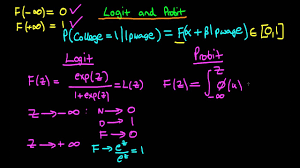 Logit and Probit
F(-∞) = 0 ✓
F(+∞) = 1 ✓
P(College = 1 | Pwage) = F(α + β Pwage) ∈ [0,1]
Logit
F(z) = exp(z) / (1 + exp(z)) = L(z)
z → -∞ : N → 0
D → 1
F → 0
z → +∞ F → e^z / e^z = 1
Probit
F(z) = ∫_{-∞}^{z} ϕ(u)